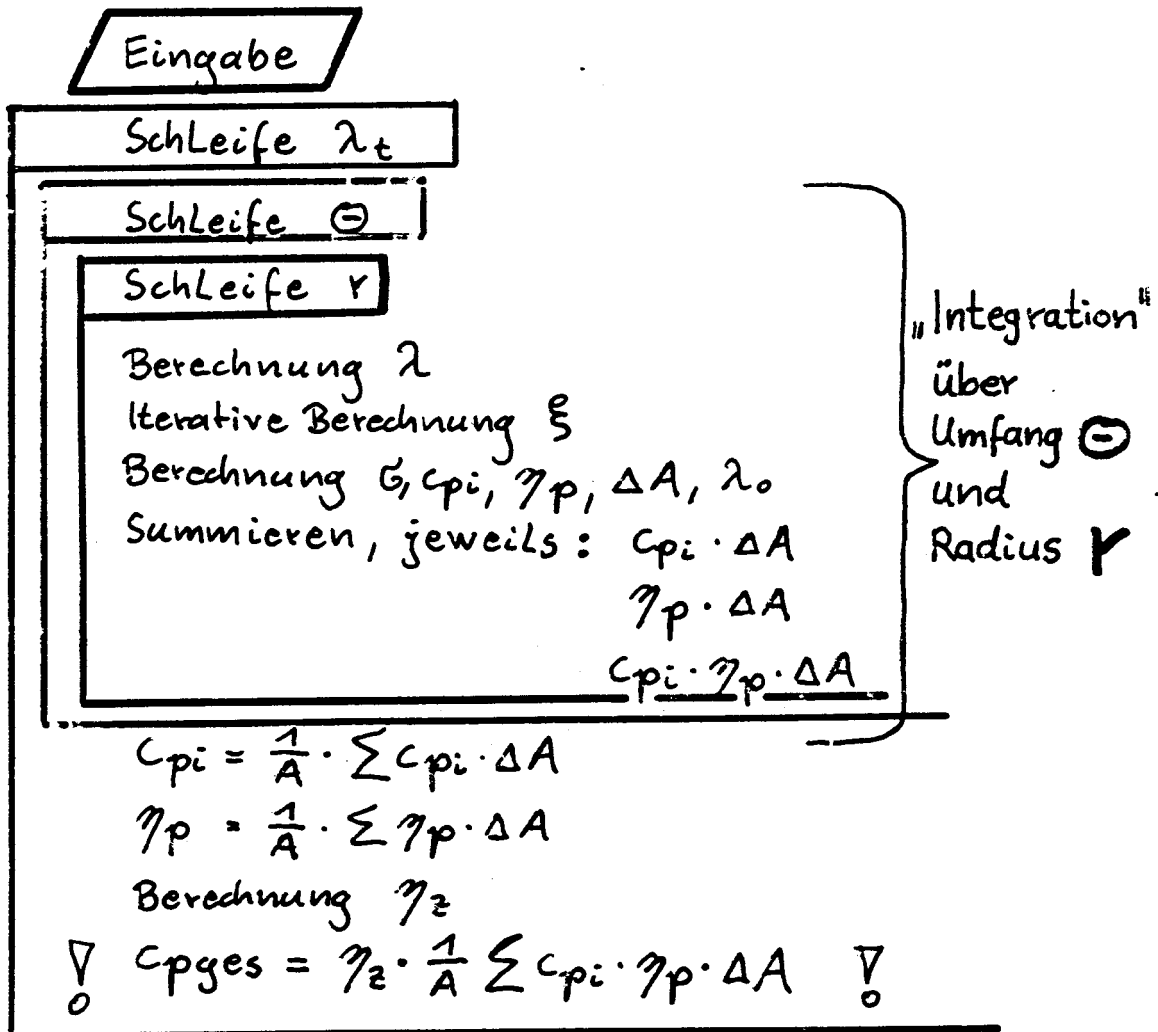 Eingabe
Schleife λt
Schleife Θ
Schleife r
Berechnung λ
Iterative Berechnung ξ
Berechnung σ, cpi, ηp, ΔA, λo
Summieren, jeweils: cpi · ΔA
ηp · ΔA
cpi · ηp · ΔA
„Integration"
über
Umfang Θ
und
Radius r
cpi = 1/A · Σ cpi · ΔA
ηp = 1/A · Σ ηp · ΔA
Berechnung ηz
! cpges = ηz · 1/A Σ cpi · ηp · ΔA !